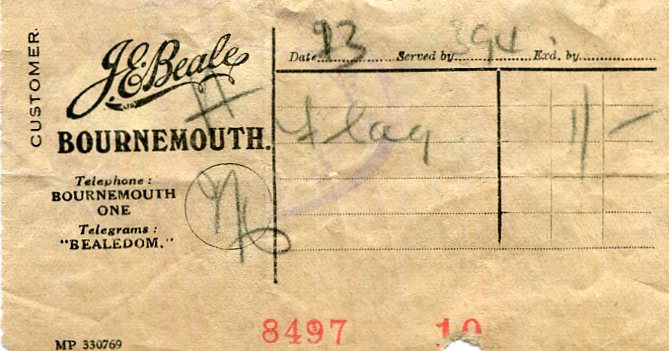 CUSTOMER
J.E. Beale
BOURNEMOUTH.
Telephone :
BOURNEMOUTH
ONE
Telegrams :
"BEALEDOM."
Date 23 Served by 394 Exd. by
Flag 11/-
8497 10
MP 330769